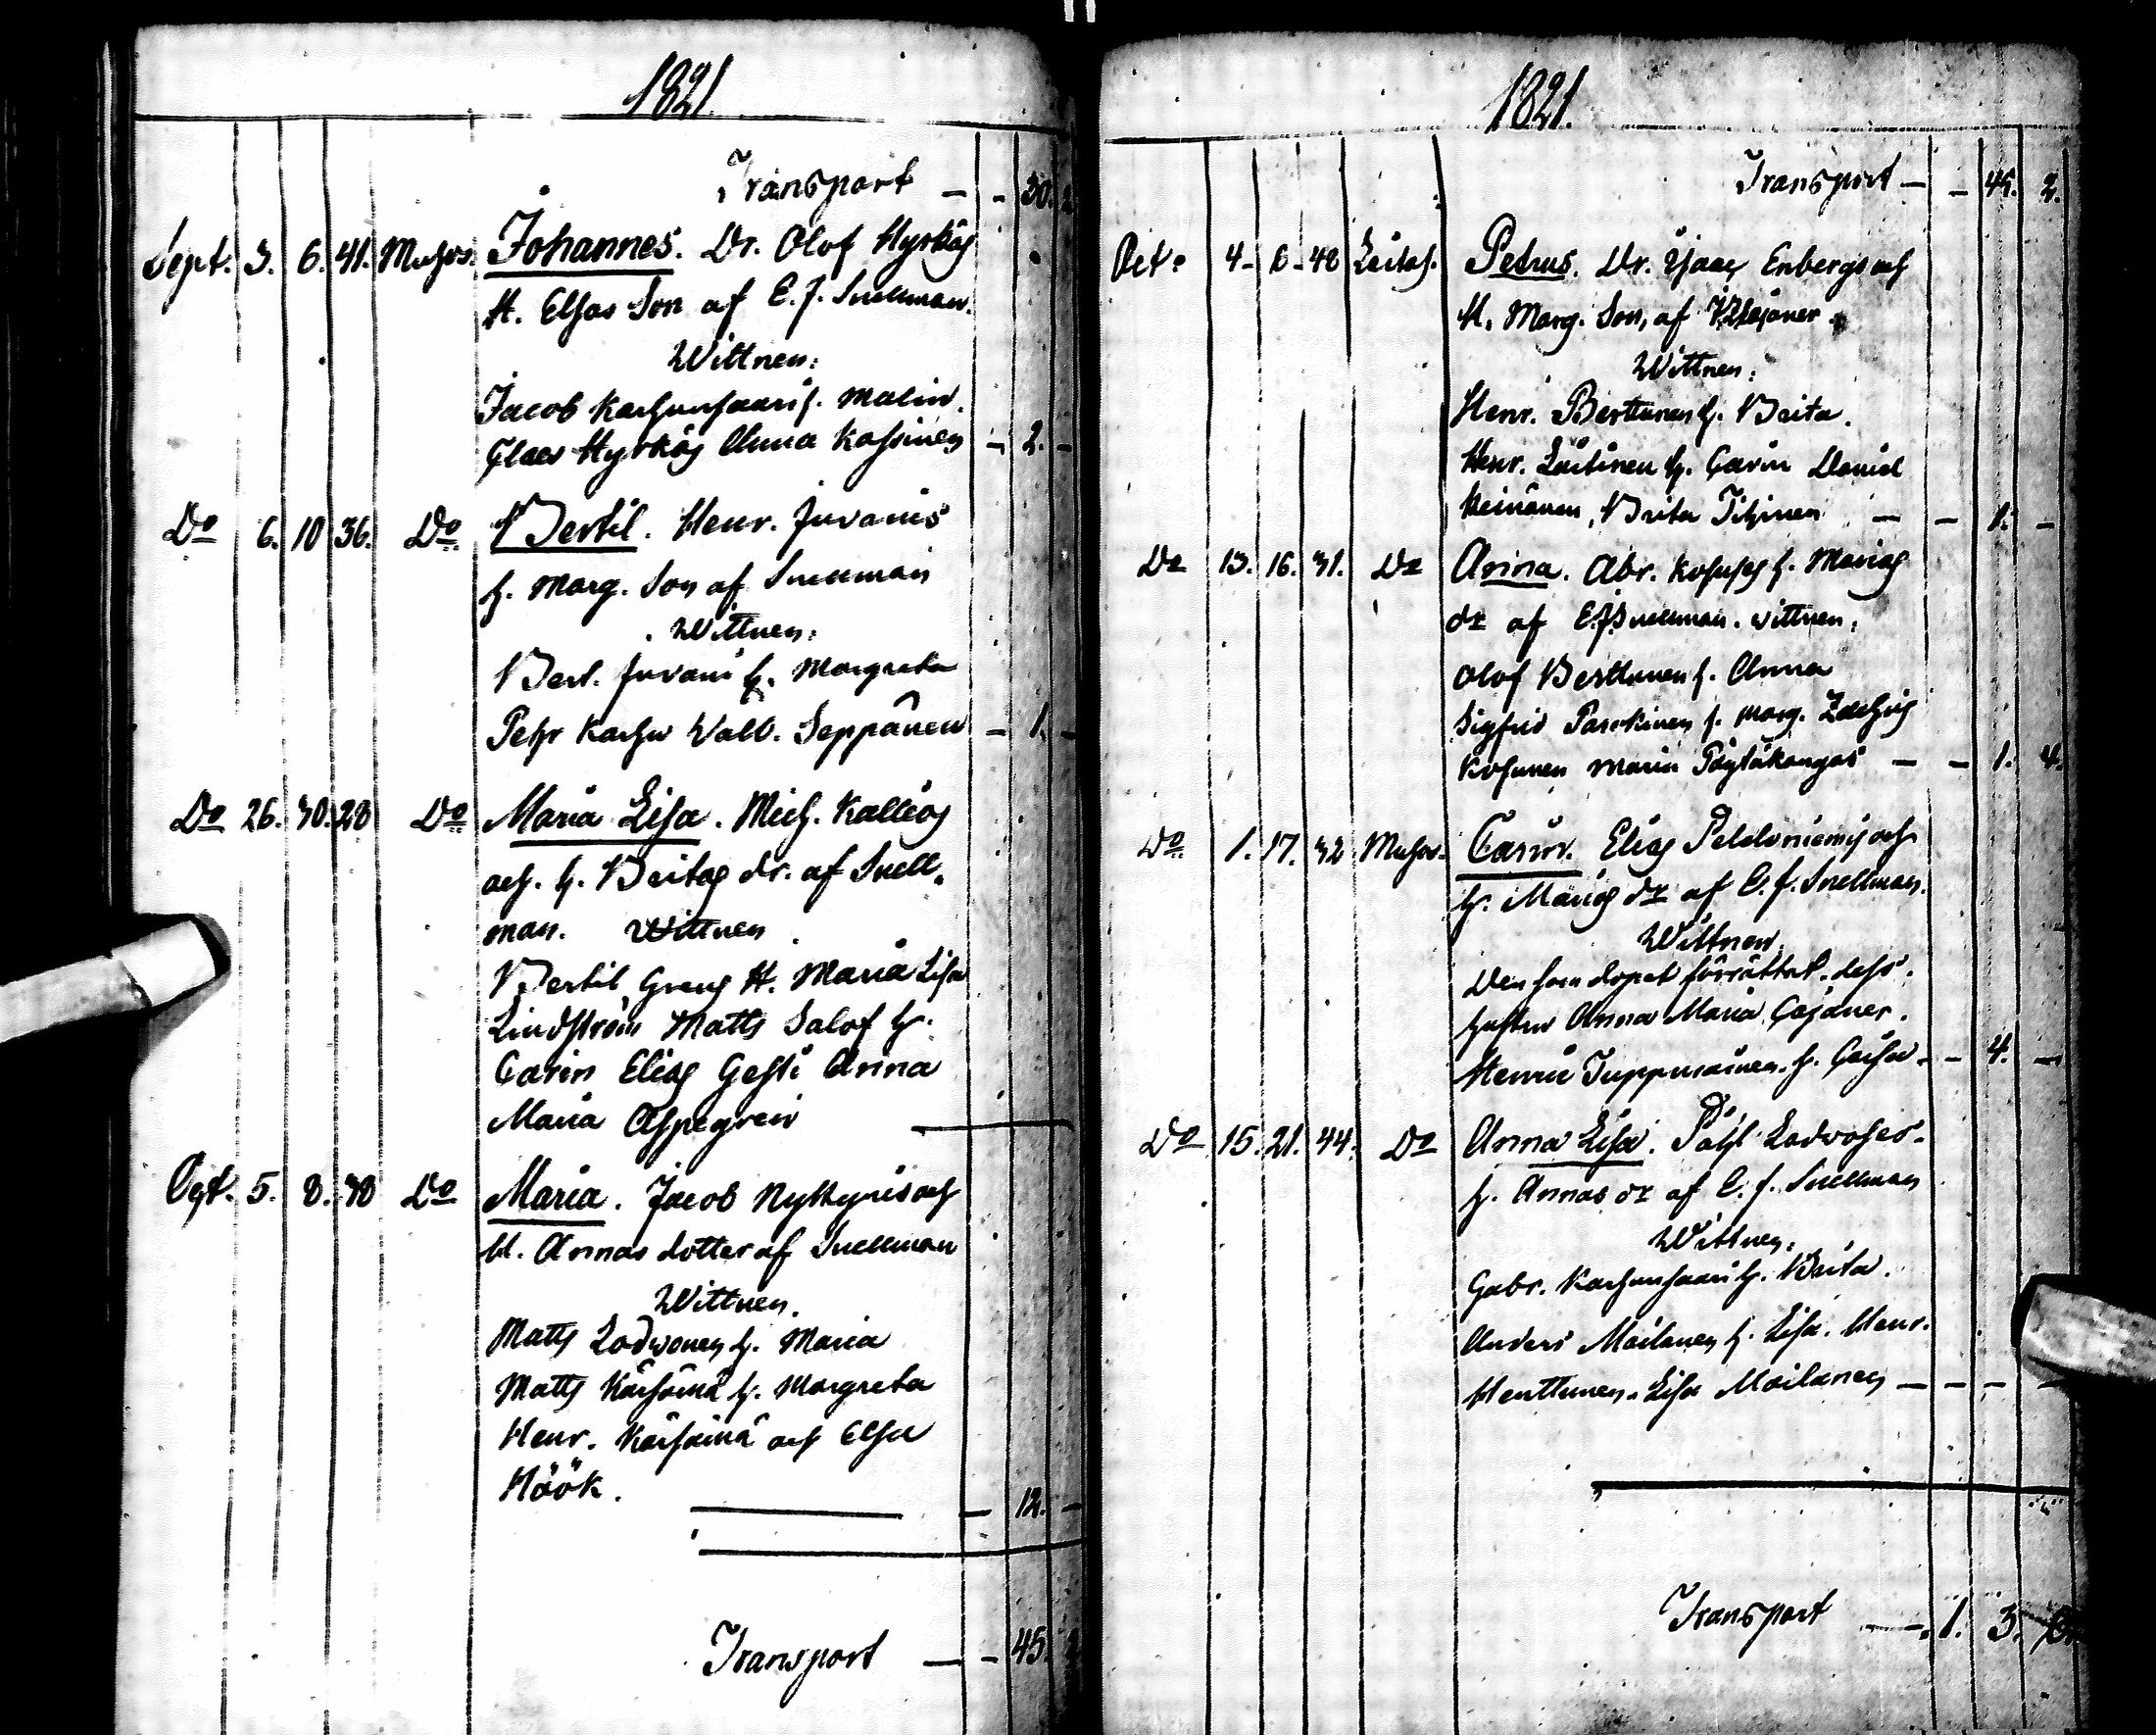 1821.
Transport - - 30. 2
Sept. 3. 6. 41. Muhos. Johannes. Dr. Olof Hyrkäs
H. Elsas Son af E. J. Snellman.
Wittnen:
Jacob Karhunsaari h. Malin.
Claes Hyrkäs Anna Kossinen - 2. -
Do 6. 10 36. Do Bertil. Henr. Juvanis
h. Marg. Son af Snellman
Wittnen:
Bert. Juvani h. Margreta
Pehr Karhu Walb. Seppänen - 1. -
Do 26. 30. 28 Do Maria Lisa. Mich. Kallios
och. h. Britas dr. af Snell-
man. Wittnen
Bertil Greus H. Maria Lisa
Lindström Matts Salof h.
Carin Elias Gesti Anna
Maria Aspegren
Oct. 5. 8. 38 Do Maria. Jacob Nyktyris och
H. Annas dotter af Snellman
Wittnen.
Matts Lodwonen h. Maria
Matts Kärsämä h. Margreta
Henr. Kärsämä och Elsa
Höök. - 12. -
Transport - - 45. 2
1821.
Transport - - 45. 2.
Oct. 4 - 6 - 48 Säräs. Petrus. Dr. Isaac Enbergs och
H. Marg. Son, af
Wittnen:
Henr. Berttunen h. Brita.
Henr. Läitinen h. Carin Daniel
Heinänen, Brita Tihinen - - 1. -
Do 13. 16. 31. Do Anna. Abr. h. Marias
dr af E J Snellman. wittnen:
Olof Berttunen h. Anna
Sigfrid Parckinen h. Marg. Zachris
Kosunen Maria Pöytäkangas - - 1. 4.
Do 1. 17. 32 Muhos. Carin. Elias Peldoniemis och
h. Marias dr af E. J. Snellman.
Wittnen.
Den som dopet förrättat. dess
hustru Anna Maria Cajaner.
Henric Juppunainen. h. Caisa - - 4. -
Do 15. 21. 44. Do Anna Lisa. Påhl Lodwoses.
h. Annas dr af E. J. Snellman
Wittnen.
Gabr. Karhunsaari h. Brita.
Anders Mailanen h. Lisa. Henr.
Henttunen. Lisa Mailanen - - - -
Transport - 1. 3.